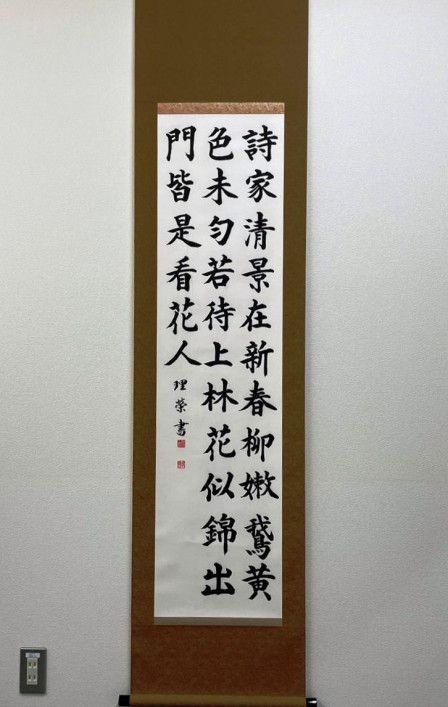 詩家清景在新春柳嫩鵞黄
色未匀若待上林花似錦出
門皆是看花人
理榮書